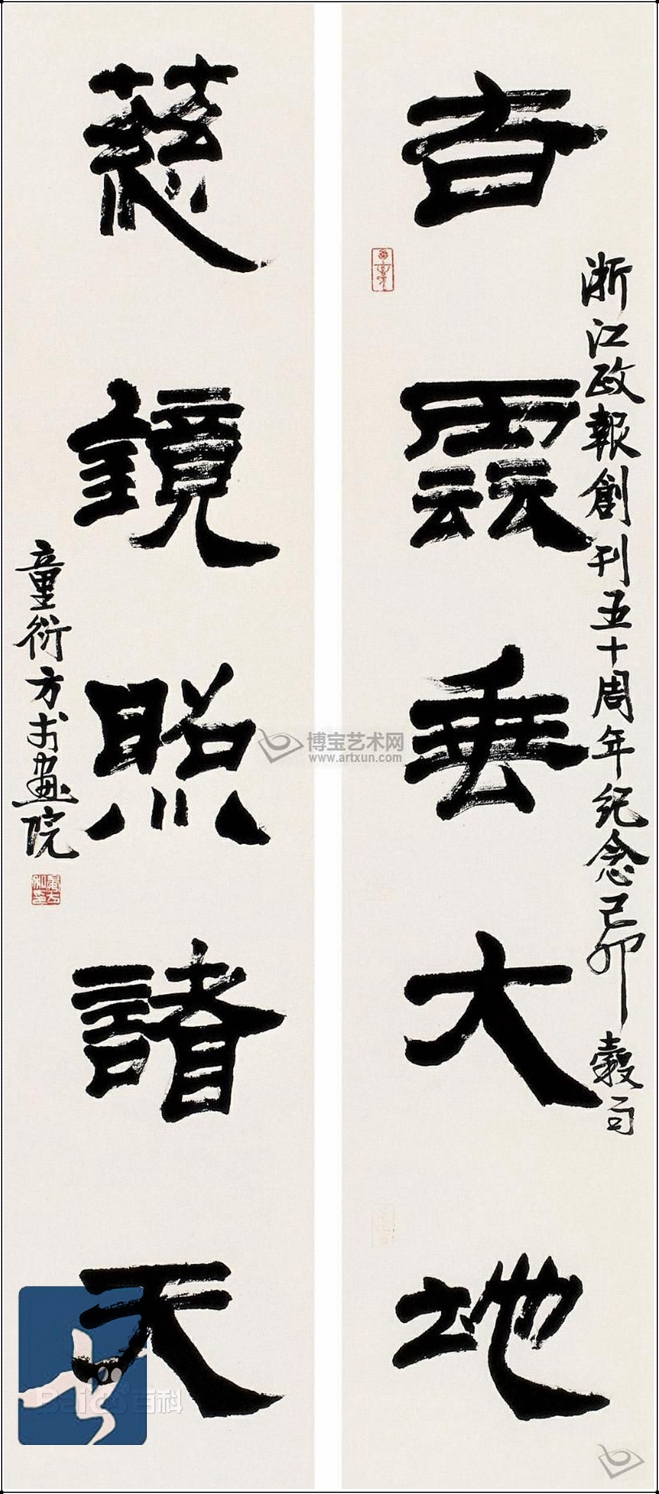 雲垂大地
浙江政報創刊五十周年紀念己卯穀旦
慈鏡照諸天
童衍方于畫院
博宝艺术网
www.artxun.com
Baidu百科